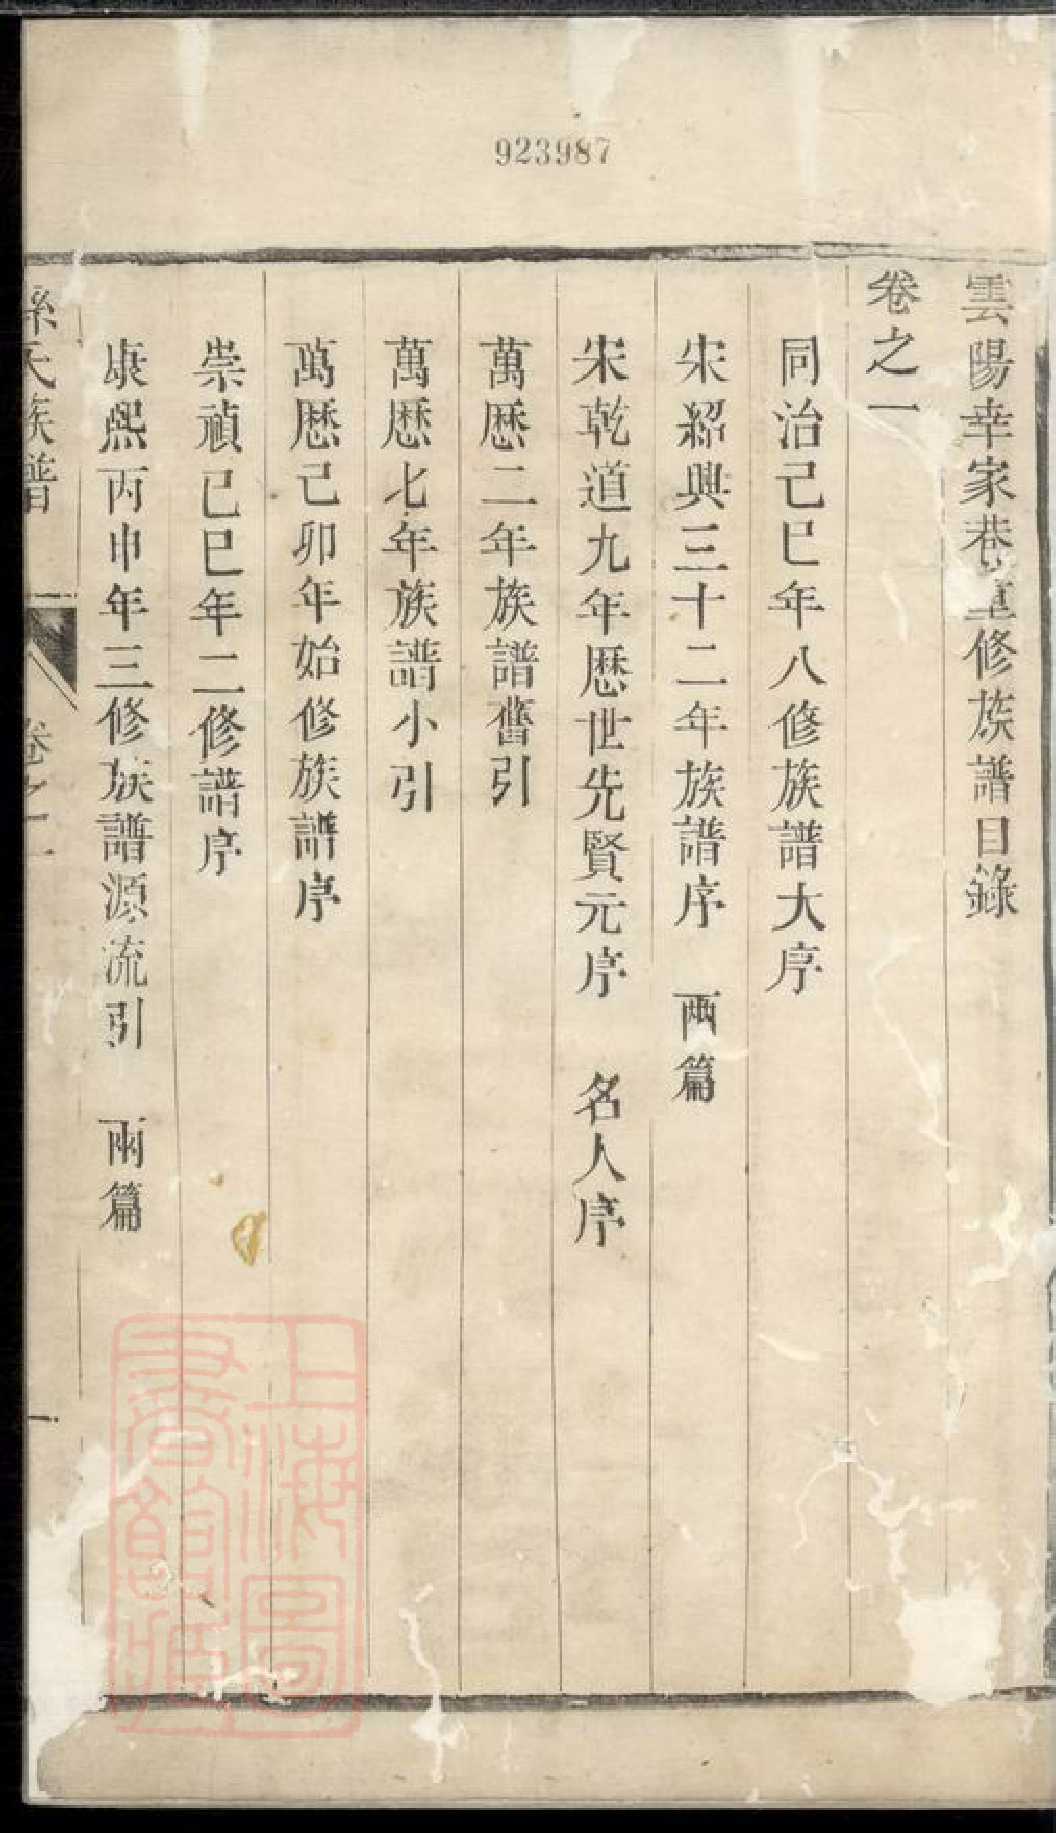 923987
雲陽幸家巷重修族譜目錄
卷之一
同治己巳年八修族譜大序
宋紹興三十二年族譜序　兩篇
宋乾道九年歷世先賢元序　名人序
萬歷二年族譜舊引
萬歷七年族譜小引
萬歷己卯年始修族譜序
崇禎己巳年二修譜序
康熙丙申年三修族譜源流引　兩篇
孫氏族譜　卷之一　一
上海圖
書館藏